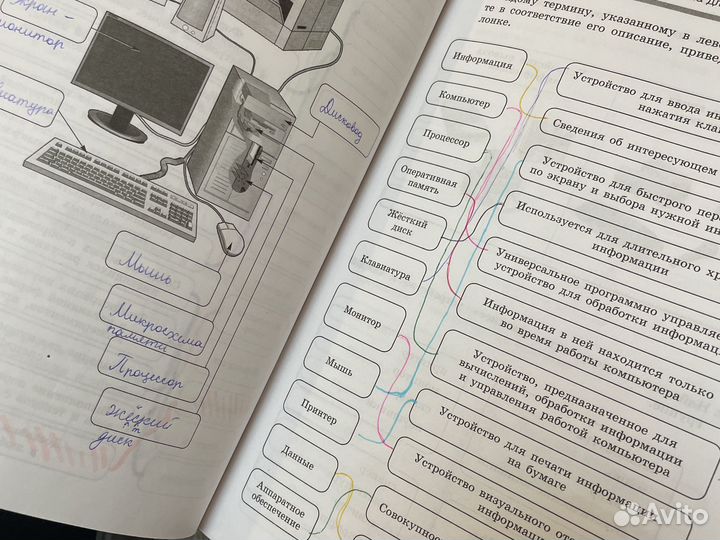 Экран -
монитор
Дисковод
Мышь
Микросхема
памяти
Процессор
Жёсткий
диск
термину, указанному в
те в соответствие его описание,
лонке.
Информация
Компьютер
Процессор
Оперативная
память
Жёсткий
диск
Клавиатура
Монитор
Мышь
Принтер
Данные
Аппаратное
обеспечение
Устройство для ввода
нажатия
Сведения об интересующем
Устройство для быстрого
по экрану и выбора нужной
Используется для длительного
информации
Универсальное программно
устройство для обработки
Информация в ней находится только
во время работы компьютера
Устройство, предназначенное для
вычислений, обработки информации
и управления работой компьютера
Устройство для печати информации
на бумаге
Устройство визуального
Avito